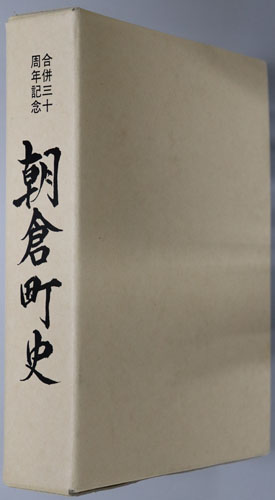 合併三十
周年記念
朝倉町史